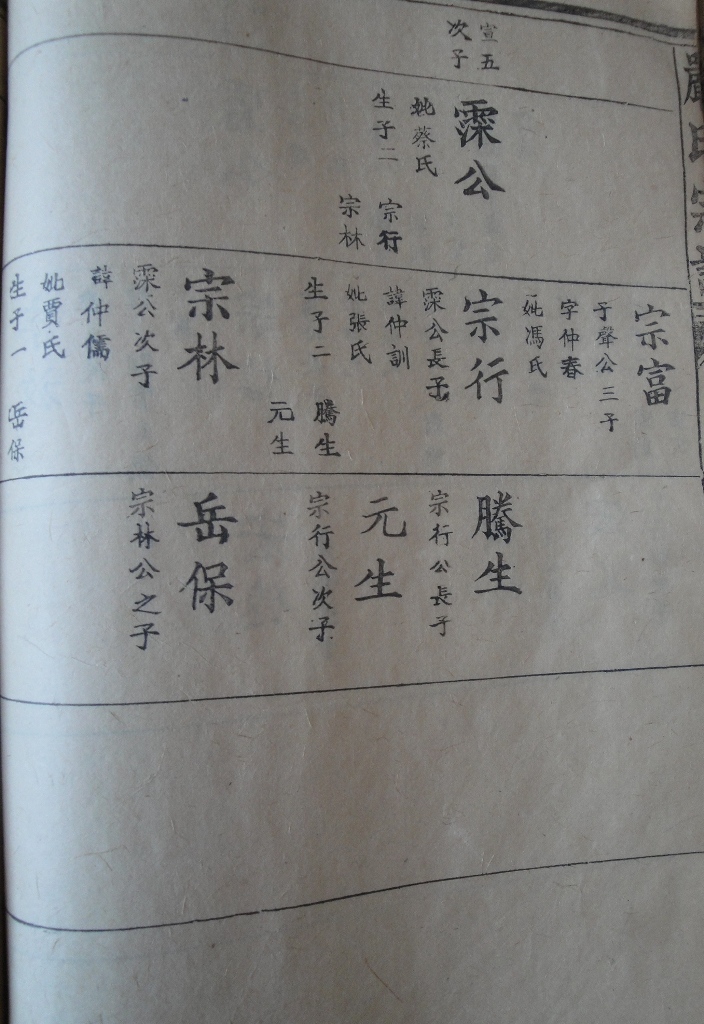 嚴氏宗譜
宣五
次子
霂公
妣蔡氏
生子二
宗行
宗林
宗富
子聲公三子
字仲春
妣馮氏
宗行
霂公長子
諱仲訓
妣張氏
生子二
騰生
元生
宗林
霂公次子
諱仲儒
妣賈氏
生子一
岳保
騰生
宗行公長子
元生
宗行公次子
岳保
宗林公之子